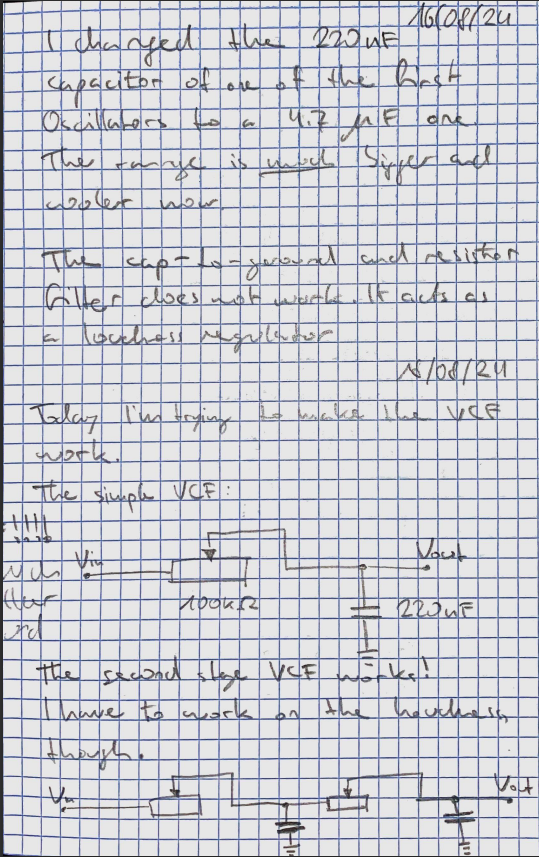 16/08/24
I changed the 220nF
capacitor of one of the first
Oscillators to a 4.7 µF one.
The range is much bigger and
cooler now.
The cap-to-ground and resistor
filter does not work. It acts as
a loudness regulator
18/08/24
Today I'm trying to make the VCF
work.
The simple VCF:
Vin
Vout
100kΩ
220nF
The second stage VCF works!
I have to work on the loudness,
though.
Vin
Vout